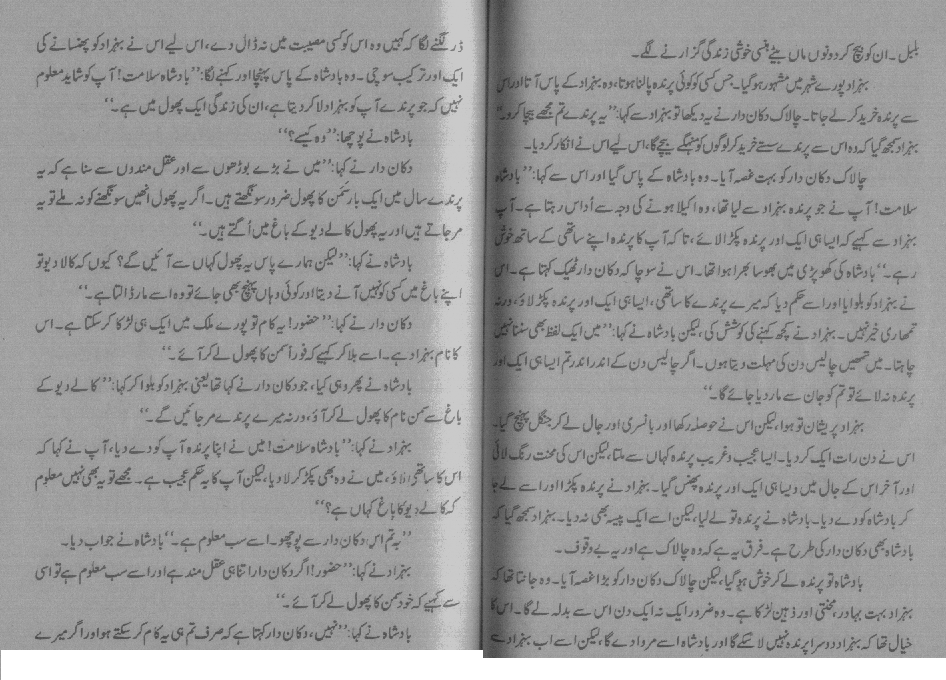 بلبل۔ ان کو بیچ کر دونوں ماں بیٹے ہنسی خوشی زندگی گزارنے لگے۔
بہزاد پورے شہر میں مشہور ہو گیا۔ جس کسی کو کوئی پرندہ پالنا ہوتا، وہ بہزاد کے پاس آتا اور اس
سے پرندہ خرید کر لے جاتا۔ چالاک دکان دار نے یہ دیکھا تو بہزاد سے کہا: ”یہ پرندے تم مجھے بیچا کرو۔“
بہزاد سمجھ گیا کہ وہ اس سے پرندے سستے خرید کر لوگوں کو مہنگے بیچے گا، اس لیے اس نے انکار کر دیا۔
چالاک دکان دار کو بہت غصہ آیا۔ وہ بادشاہ کے پاس گیا اور اس سے کہا: ”بادشاہ
سلامت! آپ نے جو پرندہ بہزاد سے لیا تھا، وہ اکیلا ہونے کی وجہ سے اُداس رہتا ہے۔ آپ
بہزاد سے کہیے کہ ایسا ہی ایک اور پرندہ پکڑ لائے، تاکہ آپ کا پرندہ اپنے ساتھی کے ساتھ خوش
رہے۔“ بادشاہ کی کھوپڑی میں بھوسا بھرا ہوا تھا۔ اس نے سوچا کہ دکان دار ٹھیک کہتا ہے۔ اس
نے بہزاد کو بلوایا اور اسے حکم دیا کہ میرے پرندے کا ساتھی، ایسا ہی ایک اور پرندہ پکڑ لاؤ، ورنہ
تمھاری خیر نہیں۔ بہزاد نے کچھ کہنے کی کوشش کی، لیکن بادشاہ نے کہا: ”میں ایک لفظ بھی سننا نہیں
چاہتا۔ میں تمھیں چالیس دن کی مہلت دیتا ہوں۔ اگر چالیس دن کے اندر اندر تم ایسا ہی ایک اور
پرندہ نہ لائے تو تم کو جان سے مار دیا جائے گا۔“
بہزاد پریشان تو ہوا، لیکن اس نے حوصلہ رکھا اور بانسری اور جال لے کر جنگل پہنچ گیا۔
اس نے دن رات ایک کر دیا۔ ایسا عجیب و غریب پرندہ کہاں سے ملتا، لیکن اس کی محنت رنگ لائی
اور آخر اس کے جال میں ویسا ہی ایک اور پرندہ پھنس گیا۔ بہزاد نے پرندہ پکڑا اور اسے لے جا
کر بادشاہ کو دے دیا۔ بادشاہ نے پرندہ تو لے لیا، لیکن اسے ایک پیسہ بھی نہ دیا۔ بہزاد سمجھ گیا کہ
بادشاہ بھی دکان دار کی طرح ہے۔ فرق یہ ہے کہ وہ چالاک ہے اور یہ بے وقوف۔
بادشاہ تو پرندہ لے کر خوش ہو گیا، لیکن چالاک دکان دار کو بڑا غصہ آیا۔ وہ جانتا تھا کہ
بہزاد بہت بہادر، محنتی اور ذہین لڑکا ہے۔ وہ ضرور ایک نہ ایک دن اس سے بدلہ لے گا۔ اس کا
خیال تھا کہ بہزاد دوسرا پرندہ نہیں لا سکے گا اور بادشاہ اسے مروا دے گا، لیکن اسے اب بہزاد سے
ڈر لگنے لگا کہ کہیں وہ اس کو کسی مصیبت میں نہ ڈال دے، اس لیے اس نے بہزاد کو پھنسانے کی
ایک اور ترکیب سوچی۔ وہ بادشاہ کے پاس پہنچا اور کہنے لگا: ”بادشاہ سلامت! آپ کو شاید معلوم
نہیں کہ جو پرندے آپ کو بہزاد لا کر دیتا ہے، ان کی زندگی ایک پھول میں ہے۔“
بادشاہ نے پوچھا: ”وہ کیسے؟“
دکان دار نے کہا: ”میں نے بڑے بوڑھوں سے اور عقل مندوں سے سنا ہے کہ یہ
پرندے سال میں ایک بار سمن کا پھول ضرور سونگھتے ہیں۔ اگر یہ پھول انھیں سونگھنے کو نہ ملے تو یہ
مر جاتے ہیں اور یہ پھول کالے دیو کے باغ میں اُگتے ہیں۔“
بادشاہ نے کہا: ”لیکن ہمارے پاس یہ پھول کہاں سے آئیں گے؟ کیوں کہ کالا دیو تو
اپنے باغ میں کسی کو نہیں آنے دیتا اور کوئی وہاں پہنچ بھی جائے تو وہ اسے مار ڈالتا ہے۔“
دکان دار نے کہا: ”حضور! یہ کام تو پورے ملک میں ایک ہی لڑکا کر سکتا ہے۔ اس
کا نام بہزاد ہے۔ اسے بلا کر کہیے کہ فوراً سمن کا پھول لے کر آئے۔“
بادشاہ نے پھر وہی کیا، جو دکان دار نے کہا تھا یعنی بہزاد کو بلوا کر کہا: ”کالے دیو کے
باغ سے سمن نام کا پھول لے کر آؤ، ورنہ میرے پرندے مر جائیں گے۔“
بہزاد نے کہا: ”بادشاہ سلامت! میں نے اپنا پرندہ آپ کو دے دیا، آپ نے کہا کہ
اس کا ساتھی لاؤ، میں نے وہ بھی پکڑ کر لا دیا، لیکن آپ کا یہ حکم عجیب ہے۔ مجھے تو یہ بھی نہیں معلوم
کہ کالے دیو کا باغ کہاں ہے؟“
”یہ تم اس دکان دار سے پوچھو۔ اسے سب معلوم ہے۔“ بادشاہ نے جواب دیا۔
بہزاد نے کہا: ”حضور! اگر دکان دار اتنا ہی عقل مند ہے اور اسے سب معلوم ہے تو اسی
سے کہیے کہ خود سمن کا پھول لے کر آئے۔“
بادشاہ نے کہا: ”نہیں، دکان دار کہتا ہے کہ صرف تم ہی یہ کام کر سکتے ہو اور اگر میرے